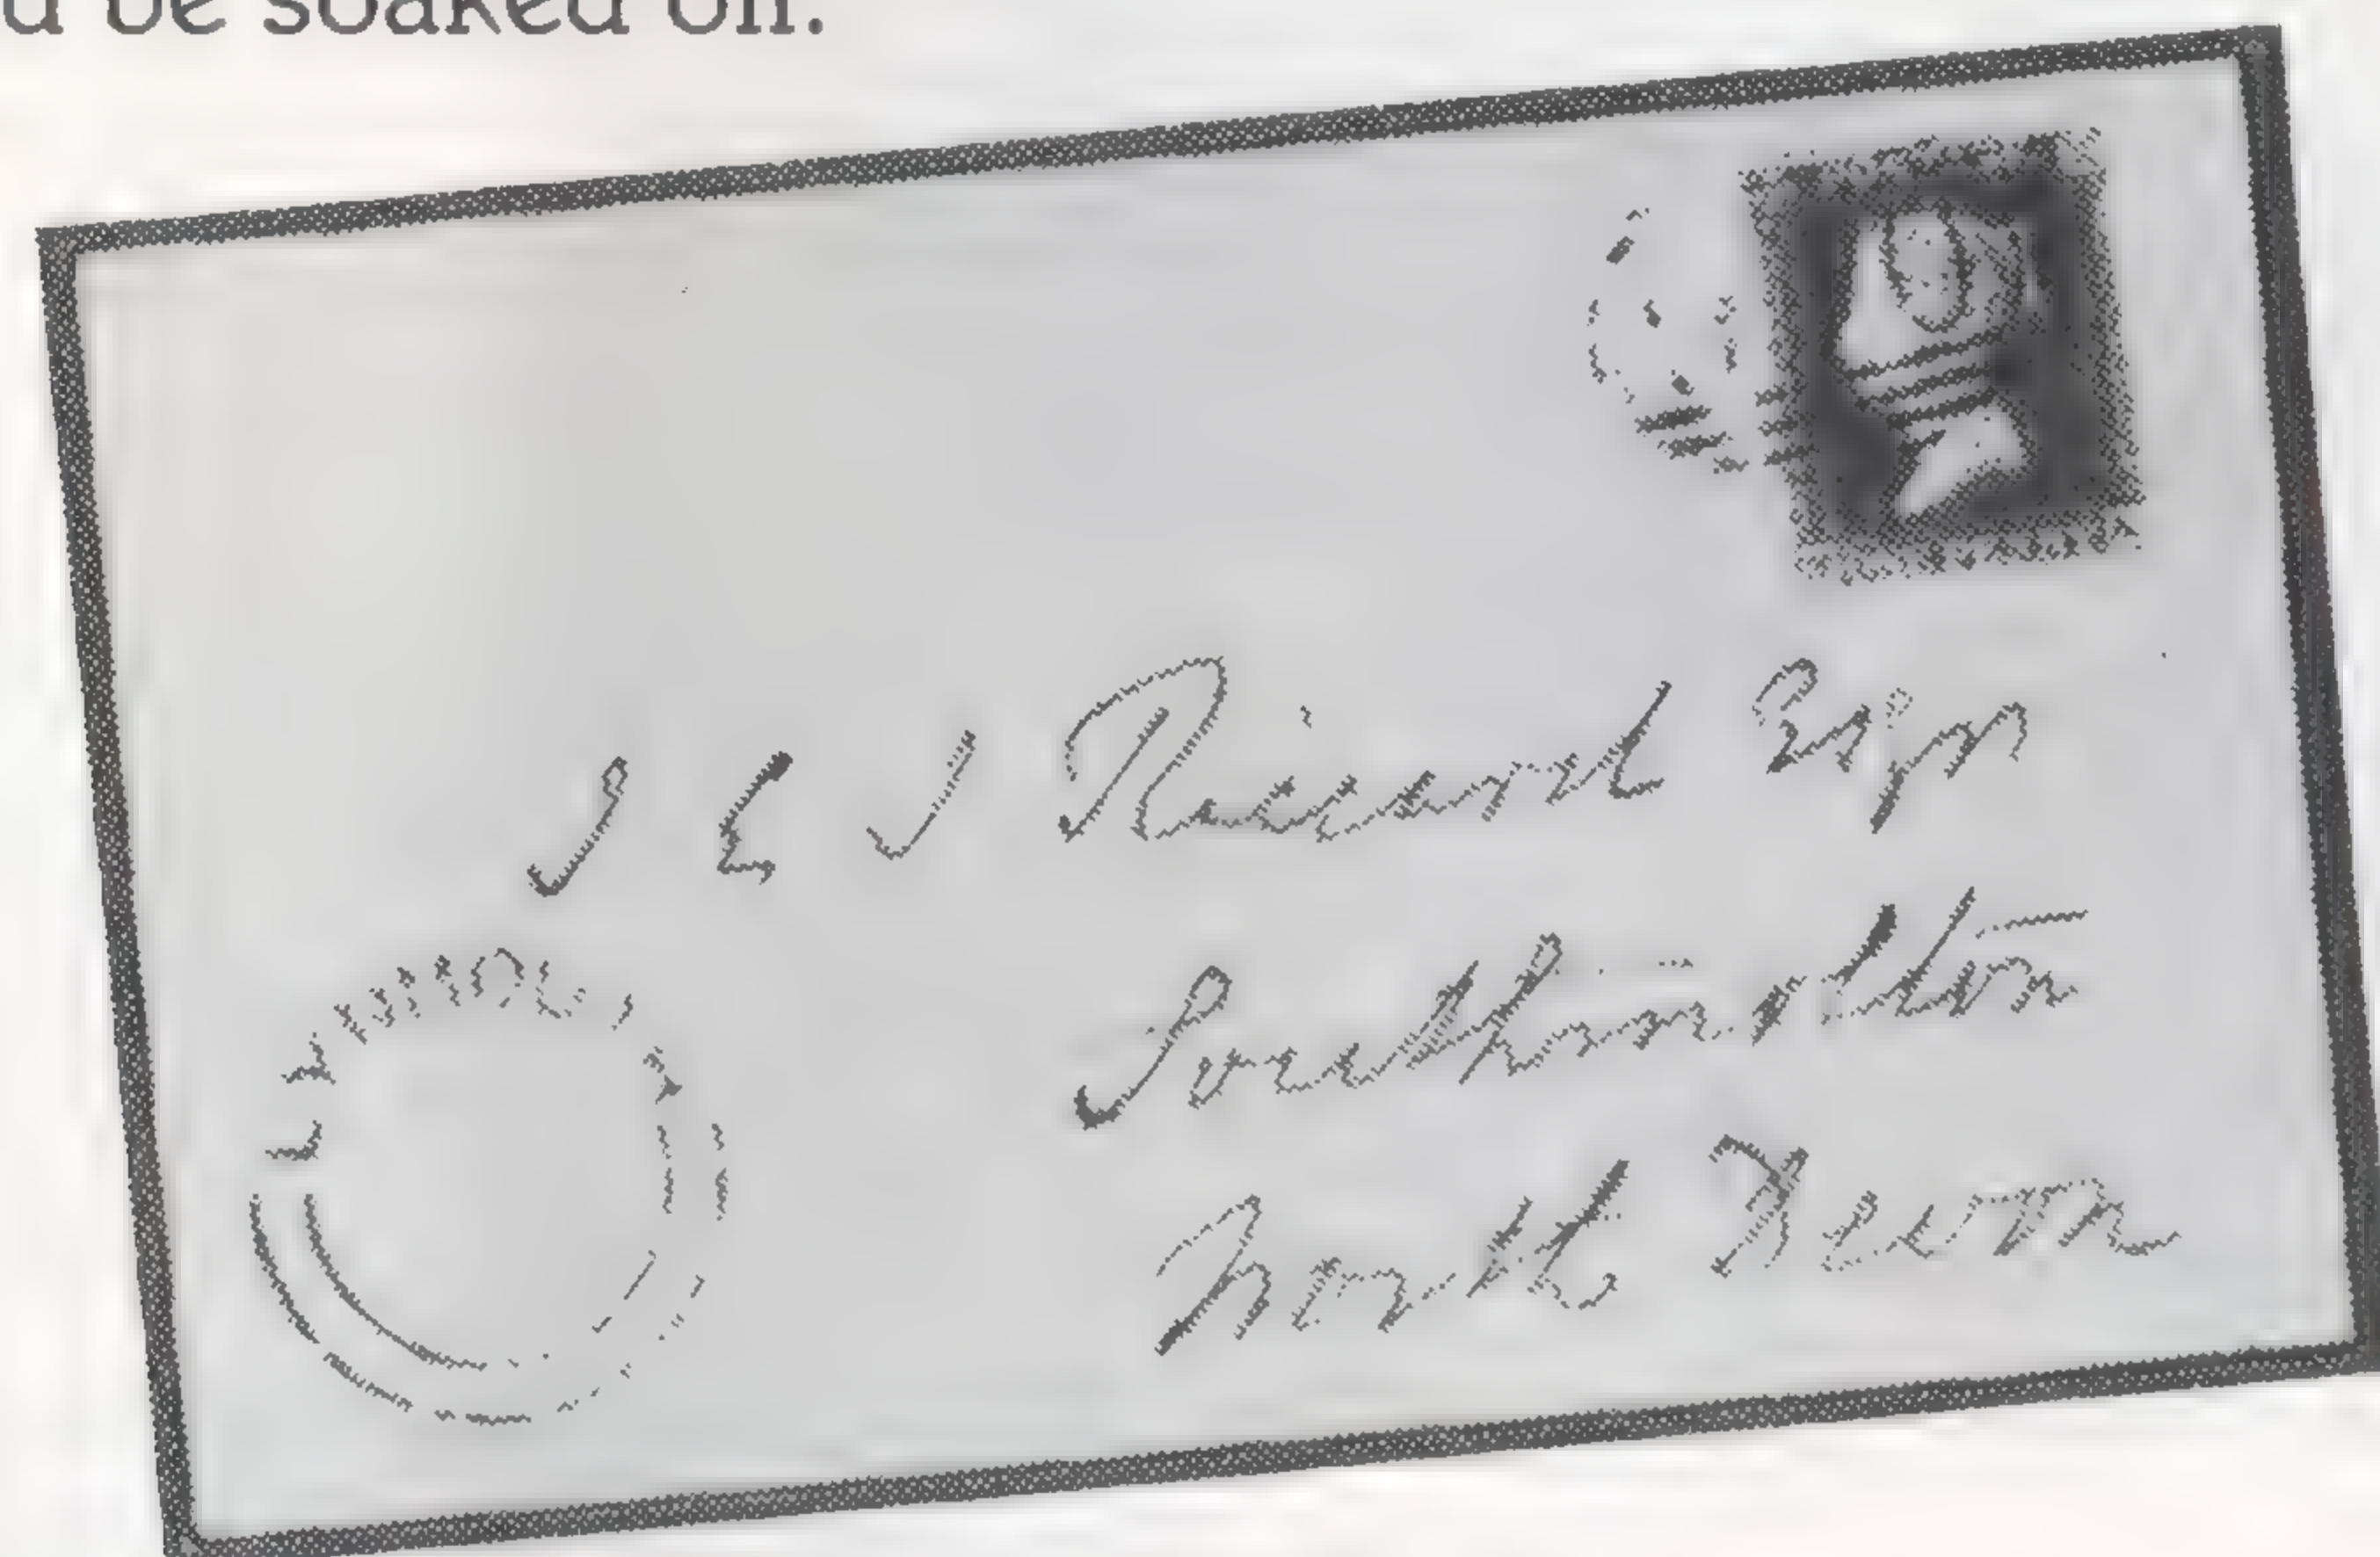 be soaked off.
J C J Riccard Esqr
Southmolton
North Devon
LYNMOUTH